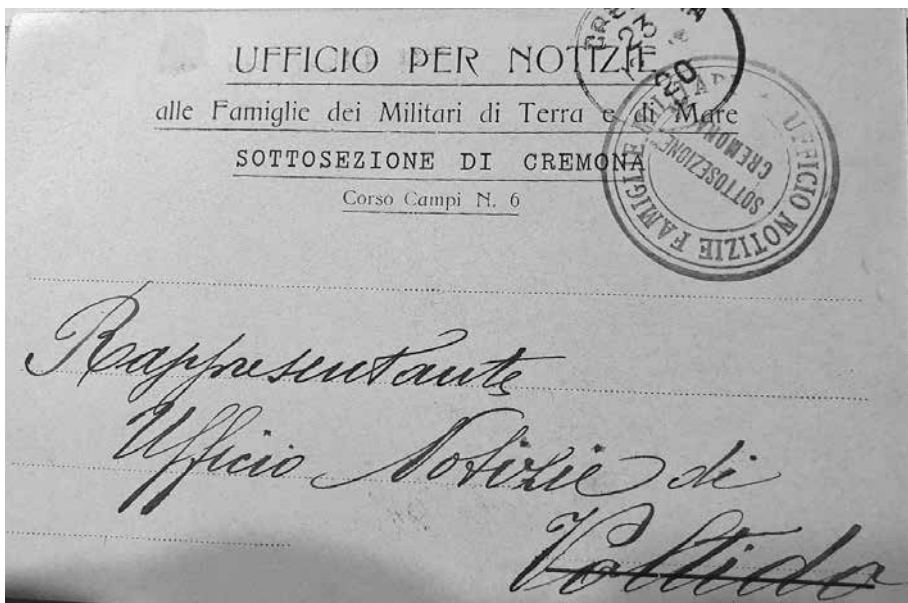 UFFICIO PER NOTIZIE
alle Famiglie dei Militari di Terra e di Mare
SOTTOSEZIONE DI CREMONA
Corso Campi N. 6
23
20
UFFICIO NOTIZIE FAMIGLIE MILITARI
SOTTOSEZIONE
CREMONA
Rappresentante
Ufficio Notizie di
Voltido